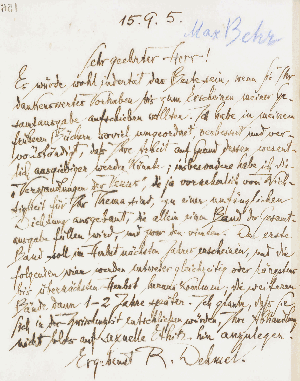 15.9.5.
Max Behr
Sehr geehrter Herr!
Es würde wohl in der That das Beste sein, wenn Sie Ihr
dankenswertes Vorhaben bis zum Erscheinen meiner Ge-
samtausgabe aufschieben wollten. Ich habe in meinen
früheren Büchern soviel umgeordnet, verbessert und ver-
vollständigt, daß Ihre Arbeit auf Grund dessen wesent-
lich ausgiebiger werden könnte; insbesondere habe ich die
"Verwandlungen der Venus", die ja vornehmlich von Wich-
tigkeit für Ihr Thema sind, zu einer umfänglichen
Dichtung ausgebaut, die allein einen Band der Gesamt-
ausgabe füllen wird, und zwar den vierten. Der erste
Band soll im Herbst nächsten Jahres erscheinen, und die
folgenden vier werden entweder gleichzeitig oder längstens
bis übernächsten Herbst herauskommen; die weiteren
Bände dann 1-2 Jahre später. Ich glaube, daß Sie
sich in der Zwischenzeit entschließen würden, Ihre Abhandlung
nicht blos auf sexuelle Ethik hin anzulegen.
Ergebenst R. Dehmel.